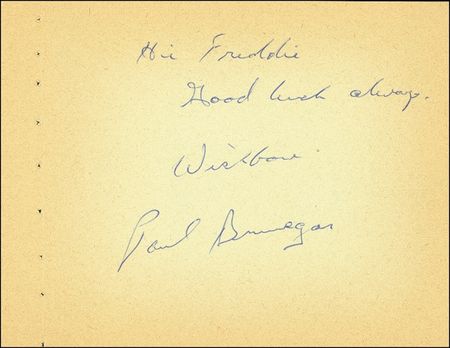 Hi Freddie
Good luck always.
Wishbone
Paul Brinegar